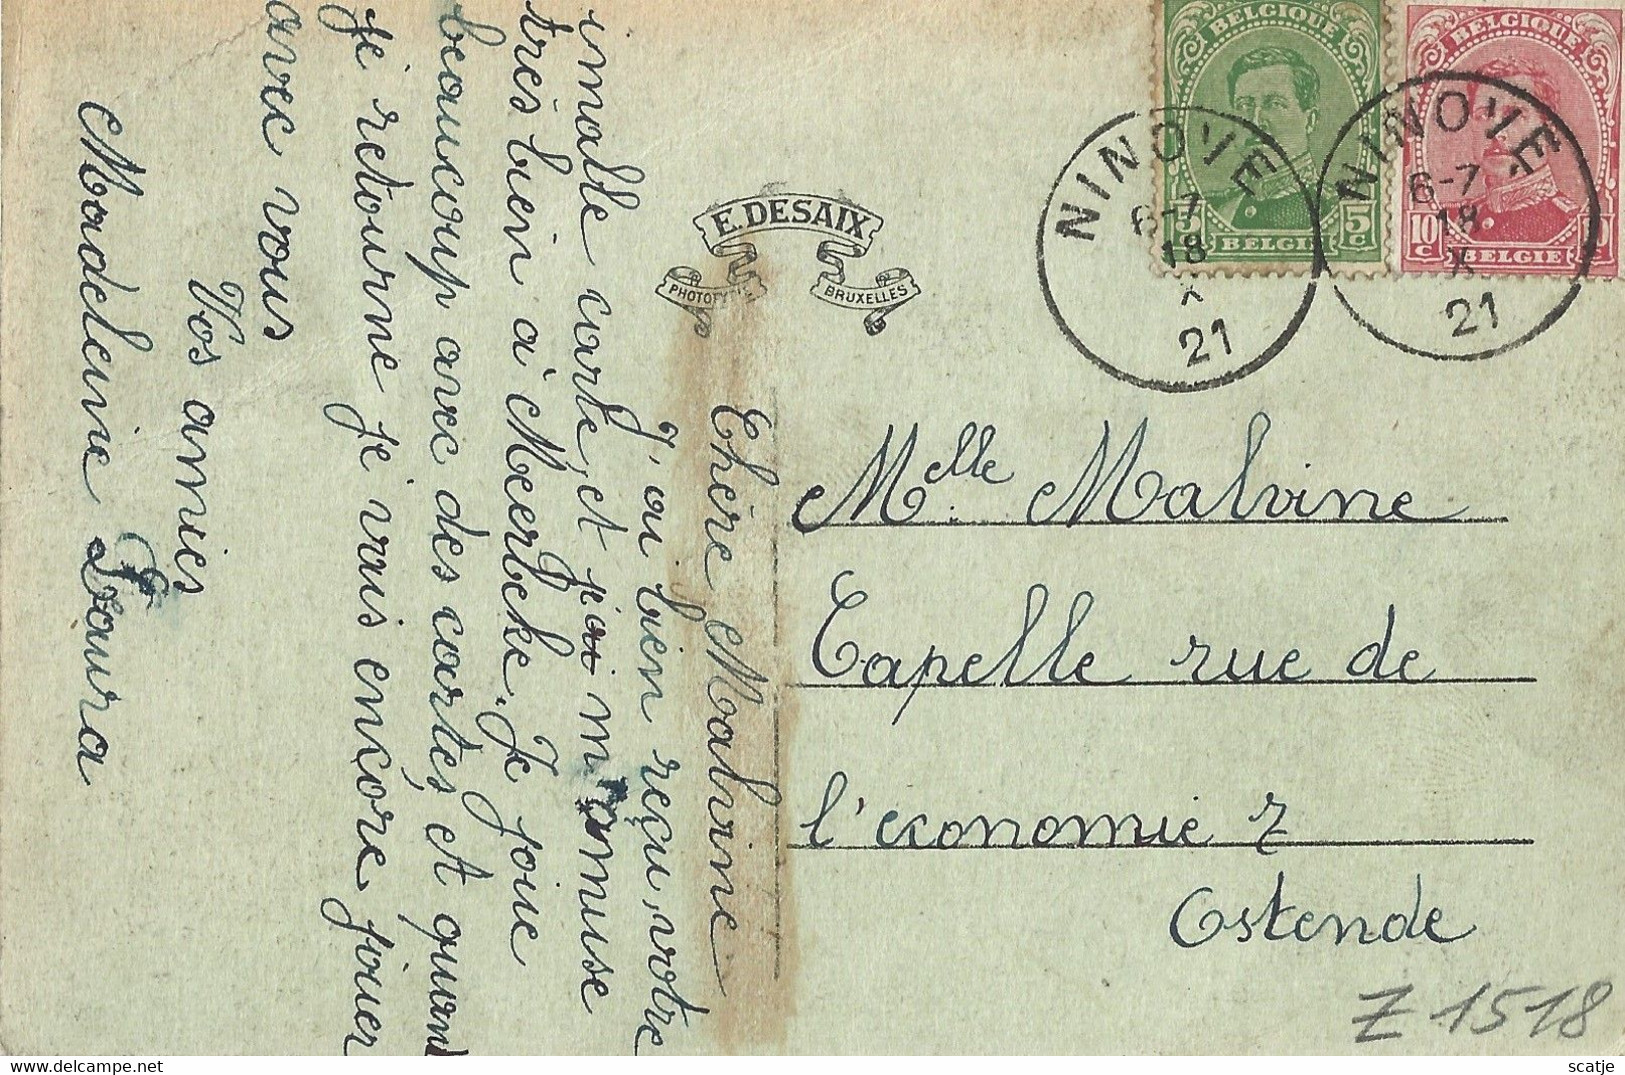 BELGIQUE
5c 5c
BELGIE
BELGIQUE
10c
BELGIE
NINOVE
6-7
18
X
21
NINOVE
6-7
18
X
21
E. DESAIX
PHOTOTYPIE
BRUXELLES
Chère Malvine
J'ai bien reçu, votre
imable carte, et j'ai m'amuse
très bien à Meerbeke. Je joue
beaucoup avec des cartes et quand
je retourne je vais encore jouer
avec vous
Vos amies
Madeleine Laura
Melle Malvine
Capelle rue de
l'economie 7
Ostende
Z 1518
scatje